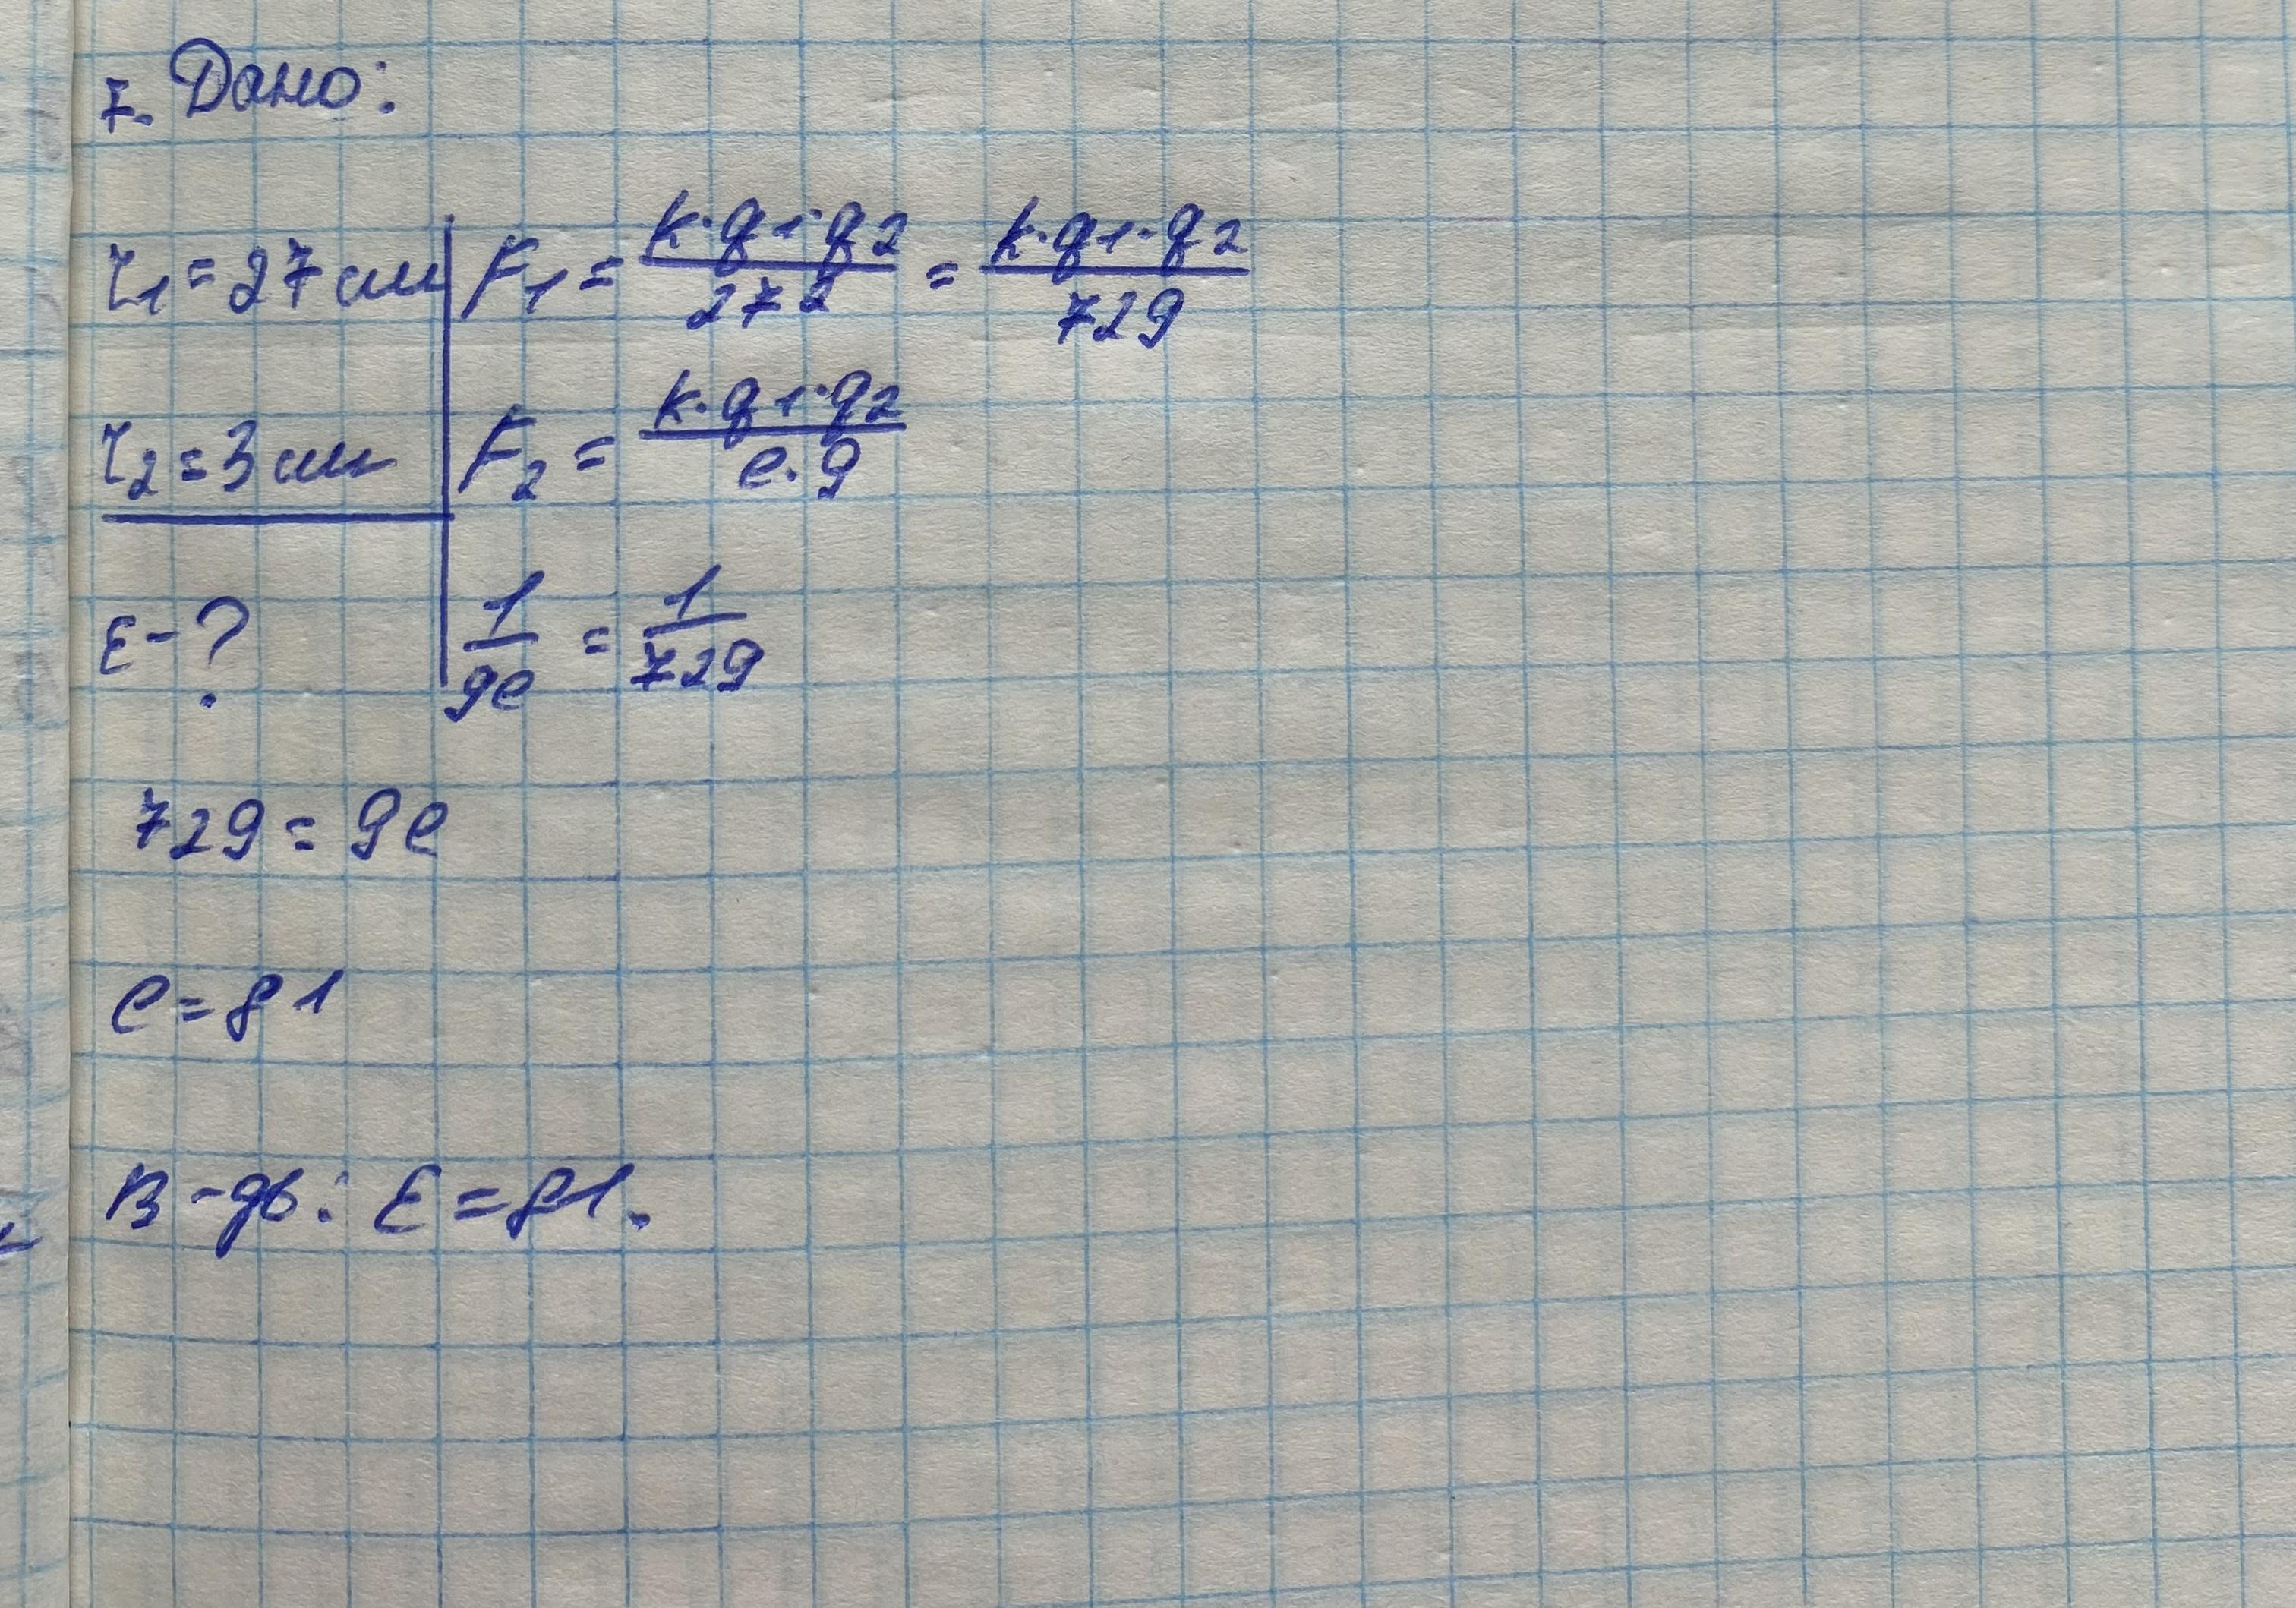 7. Дано:
r₁ = 27 см | F₁ = k·q₁·q₂ / 27² = k·q₁·q₂ / 729
r₂ = 3 см | F₂ = k·q₁·q₂ / e·9
ε - ? | 1 / 9e = 1 / 729
729 = 9e
e = 81
В-дь: ε = 81.